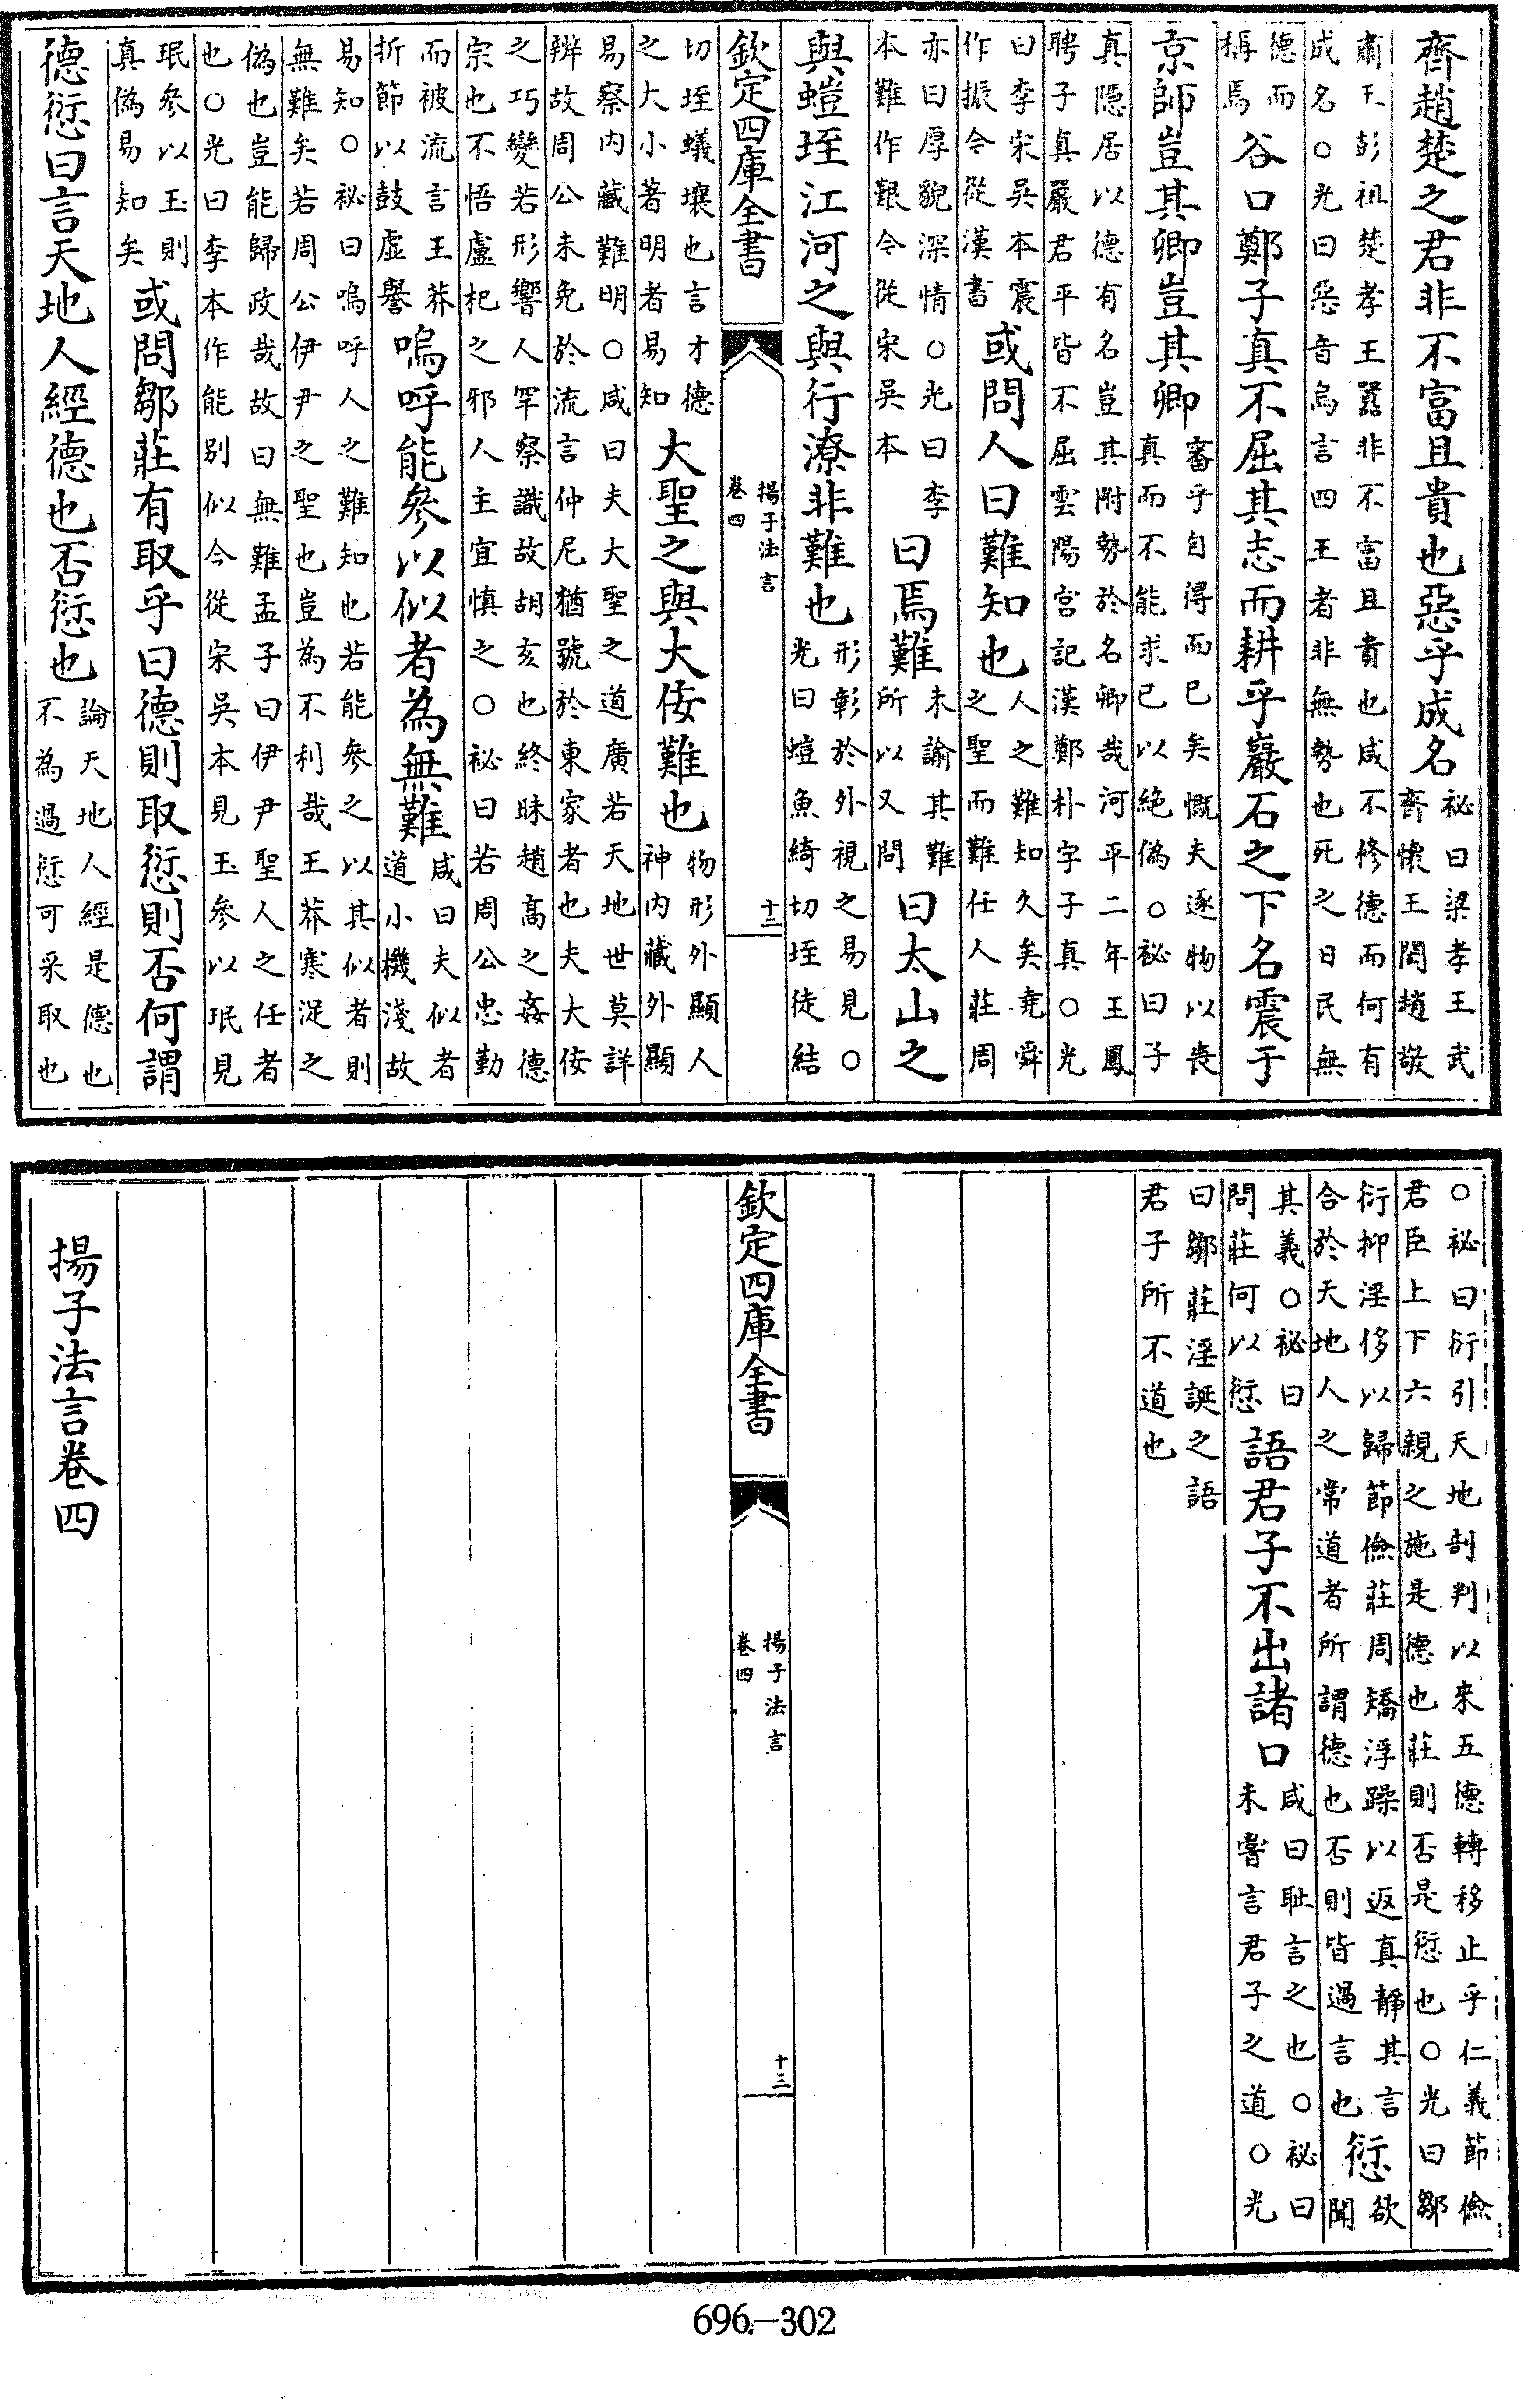 齊趙楚之君非不富且貴也惡乎成名祕曰梁孝王武齊懷王閎趙敬
肅王彭祖楚孝王囂非不富且貴也咸不修德而何有成名○光曰惡音烏言四王者非無勢也死之日民無
德而稱焉谷口鄭子真不屈其志而耕乎巖石之下名震于
京師豈其卿豈其卿審乎自得而已矣慨夫逐物以喪真而不能求已以絶偽○祕曰子
真隱居以德有名豈其附勢於名卿哉河平二年王鳳聘子真嚴君平皆不屈雲陽宫記漢鄭朴字子真○光
曰李宋吳本震作振今從漢書或問人曰難知也人之難知久矣堯舜之聖而難任人莊周
亦曰厚貌深情○光曰李本難作艱今從宋吳本曰焉難未諭其難所以又問曰太山之
與螘垤江河之與行潦非難也形彰於外視之易見○光曰螘魚綺切垤徒結
欽定四庫全書
揚子法言
卷四
十二
切垤蟻壤也言才德之大小著明者易知大聖之與大佞難也物形外顯人神内藏外顯
易察内藏難明○咸曰夫大聖之道廣若天地世莫詳辨故周公未免於流言仲尼猶號於東家者也夫大佞
之巧變若形響人罕察識故胡亥也終昧趙高之姦德宗也不悟盧杞之邪人主宜慎之○祕曰若周公忠勤
而被流言王莽折節以鼓虚譽嗚呼能參以似者為無難咸曰夫似者道小機淺故
易知○祕曰嗚呼人之難知也若能參之以其似者則無難矣若周公伊尹之聖也豈為不利哉王莽寒浞之
偽也豈能歸政哉故曰無難孟子曰伊尹聖人之任者也○光曰李本作能別似今從宋吳本見玉參以珉見
珉參以玉則真偽易知矣或問鄒莊有取乎曰德則取愆則否何謂
德愆曰言天地人經德也否愆也論天地人經是德也不為過愆可采取也
○祕曰衍引天地剖判以來五德轉移止乎仁義節儉君臣上下六親之施是德也莊則否是愆也○光曰鄒
衍抑淫侈以歸節儉莊周矯浮躁以返真靜其言合於天地人之常道者所謂德也否則皆過言也愆欲聞
其義○祕曰問莊何以愆語君子不出諸口咸曰耻言之也○祕曰未嘗言君子之道○光
曰鄒莊淫誕之語君子所不道也
欽定四庫全書
揚子法言
卷四
十三
揚子法言卷四
696-302